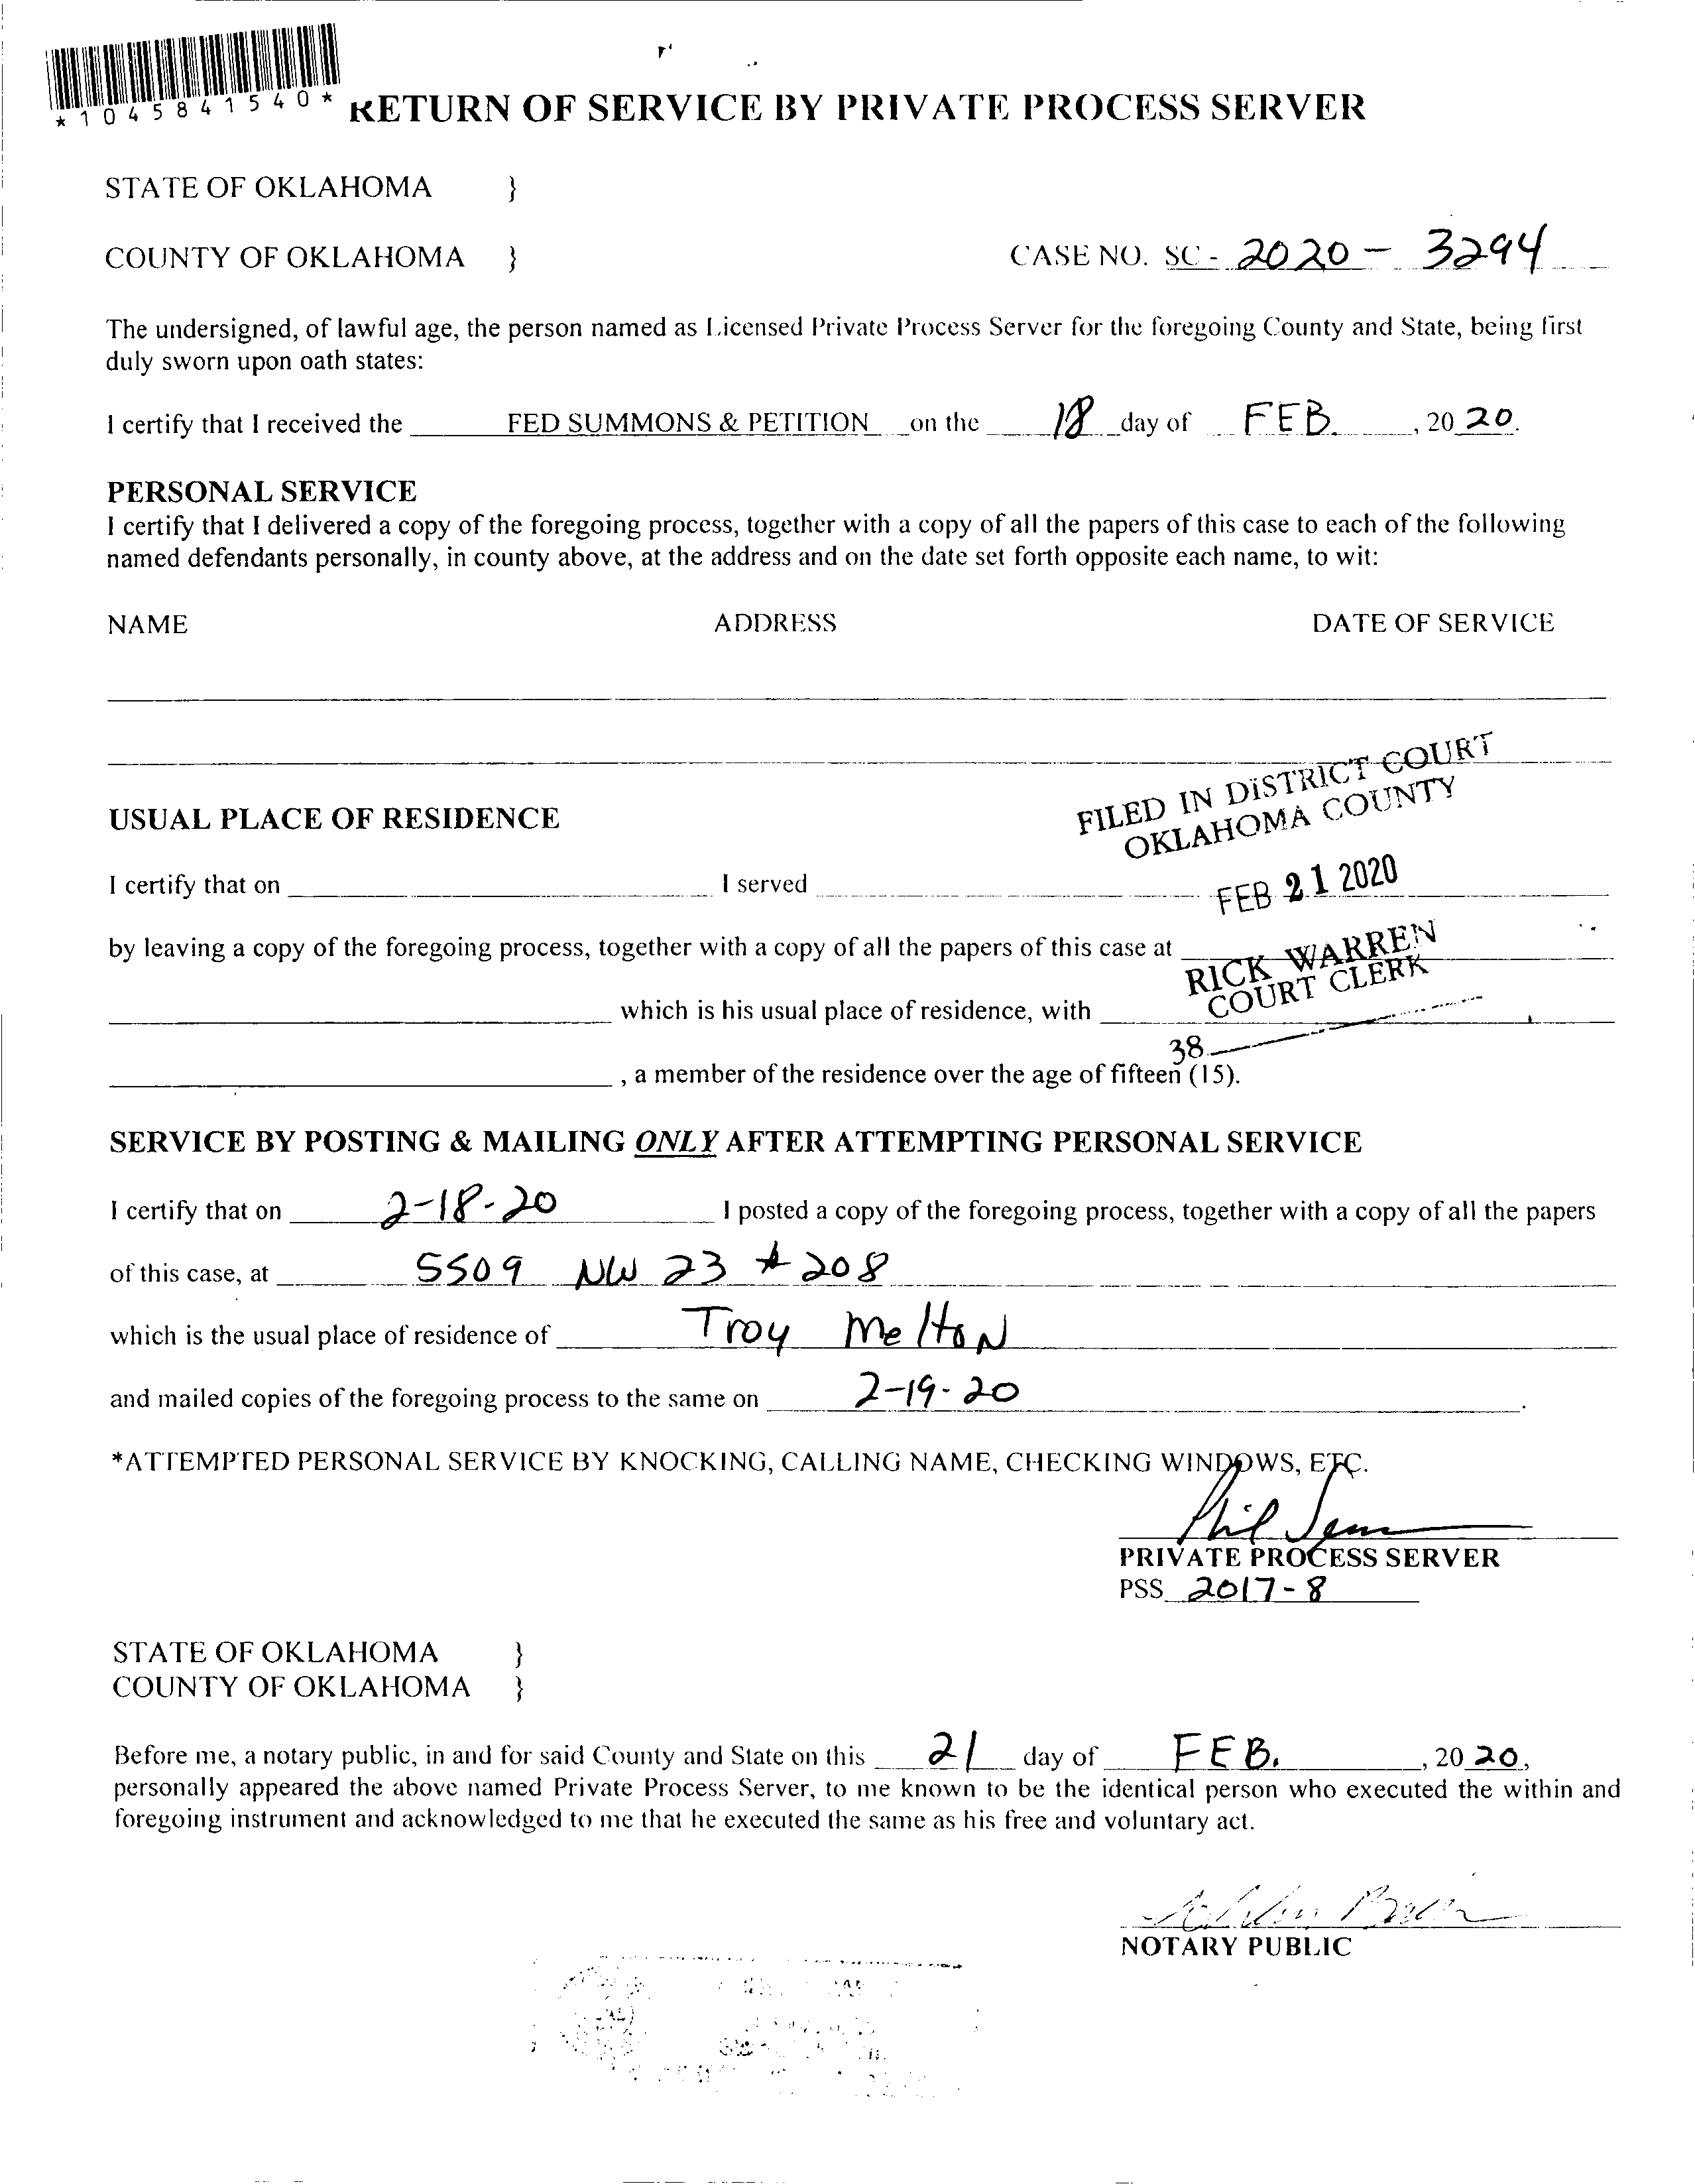 *1045841540*
RETURN OF SERVICE BY PRIVATE PROCESS SERVER
STATE OF OKLAHOMA }
COUNTY OF OKLAHOMA } CASE NO. SC - 2020 - 3294
The undersigned, of lawful age, the person named as Licensed Private Process Server for the foregoing County and State, being first
duly sworn upon oath states:
I certify that I received the FED SUMMONS & PETITION on the 18 day of FEB. , 20 20.
PERSONAL SERVICE
I certify that I delivered a copy of the foregoing process, together with a copy of all the papers of this case to each of the following
named defendants personally, in county above, at the address and on the date set forth opposite each name, to wit:
NAME ADDRESS DATE OF SERVICE
FILED IN DISTRICT COURT
OKLAHOMA COUNTY
USUAL PLACE OF RESIDENCE
I certify that on I served
FEB 21 2020
by leaving a copy of the foregoing process, together with a copy of all the papers of this case at
RICK WARREN
COURT CLERK
which is his usual place of residence, with
38
, a member of the residence over the age of fifteen (15).
SERVICE BY POSTING & MAILING ONLY AFTER ATTEMPTING PERSONAL SERVICE
I certify that on 2-18-20 I posted a copy of the foregoing process, together with a copy of all the papers
of this case, at 5509 NW 23 # 208
which is the usual place of residence of Troy Melton
and mailed copies of the foregoing process to the same on 2-19-20 .
*ATTEMPTED PERSONAL SERVICE BY KNOCKING, CALLING NAME, CHECKING WINDOWS, ETC.
PRIVATE PROCESS SERVER
PSS 2017-8
STATE OF OKLAHOMA }
COUNTY OF OKLAHOMA }
Before me, a notary public, in and for said County and State on this 21 day of FEB. , 20 20,
personally appeared the above named Private Process Server, to me known to be the identical person who executed the within and
foregoing instrument and acknowledged to me that he executed the same as his free and voluntary act.
NOTARY PUBLIC